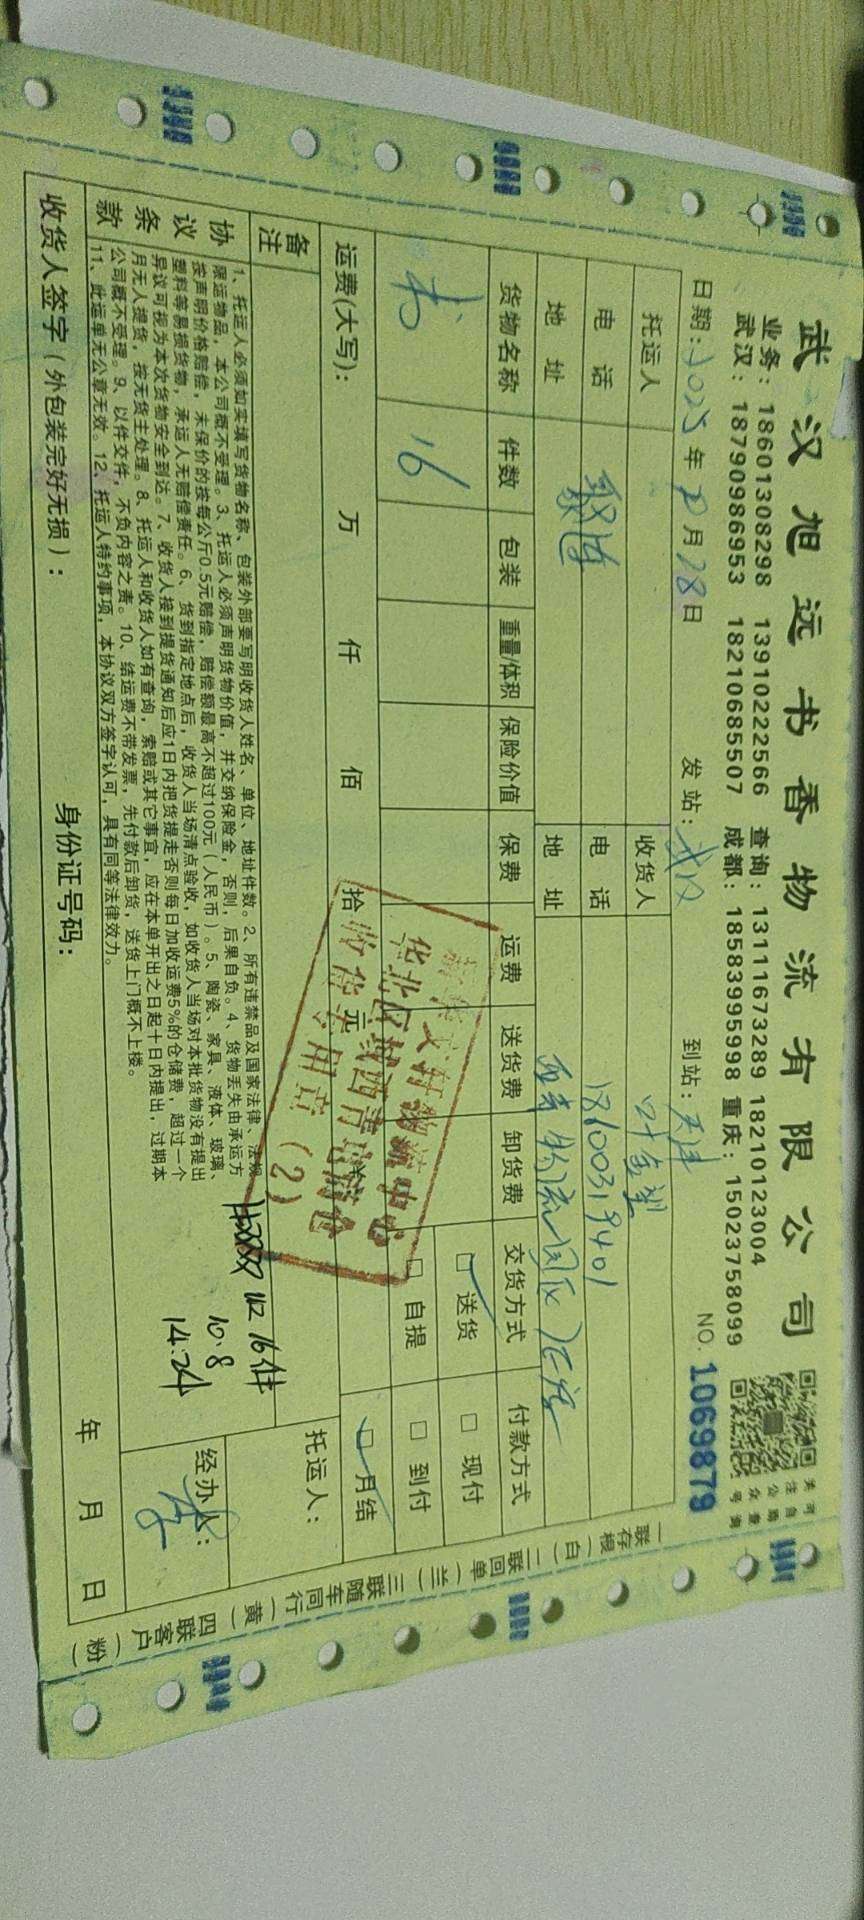 武汉旭远书香物流有限公司
业务：18601308298 13910222566 查询：13111673289 18210123004
武汉：18790986953 18210685507 成都：18583995998 重庆：15023758099
关注公众号
可自助查询
日期：2025年 月28日 发站：武汉 到站：天津 NO.1069879
托运人 收货人
电话 电话 18600319401
地址 地址 物流园区
货物名称 件数 包装 重量/体积 保险价值 保费 运费 送货费 卸货费 交货方式 付款方式
书 16 送货 现付
自提 到付
运费(大写)： 万 仟 佰 拾 元 月结
华北区域西青
收货专用章（2）
备注
16件
10.8
14:24
托运人：
经办人：
协议条款
1、托运人必须如实填写货物名称、包装外部要写明收货人姓名、单位、地址件数。2、所有违禁品及国家法律、法规
限运物品，本公司概不受理。3、托运人必须声明货物价值，并交纳保险金，否则，后果自负。4、货物丢失由承运方
按声明价格赔偿，未保价的按每公斤0.5元赔偿，赔偿额最高不超过100元（人民币）。5、陶瓷、家具、液体、玻璃、
塑料等易损货物，承运人无赔偿责任。6、货到指定地点后，收货人当场清点验收，如收货人当场对本批货物没有提出
异议可视为本次货物安全到达。7、收货人接到提货通知后应1日内把货提走否则每日加收运费5%的仓储费，超过一个
月无人提货，按无货主处理。8、托运人和收货人如有查询，索赔或其它事宜，应在本单开出之日起十日内提出，过期本
公司概不受理。9、以件交件，不负内容之责。10、结运费不带发票，先付款后卸货，送货上门概不上楼。
11、此运单无公章无效。12、托运人特约事项，本协议双方签字认可，具有同等法律效力。
收货人签字（外包装完好无损）： 身份证号码： 年 月 日
一联存根（白） 二联回单（兰） 三联随车同行（黄） 四联客户（粉）